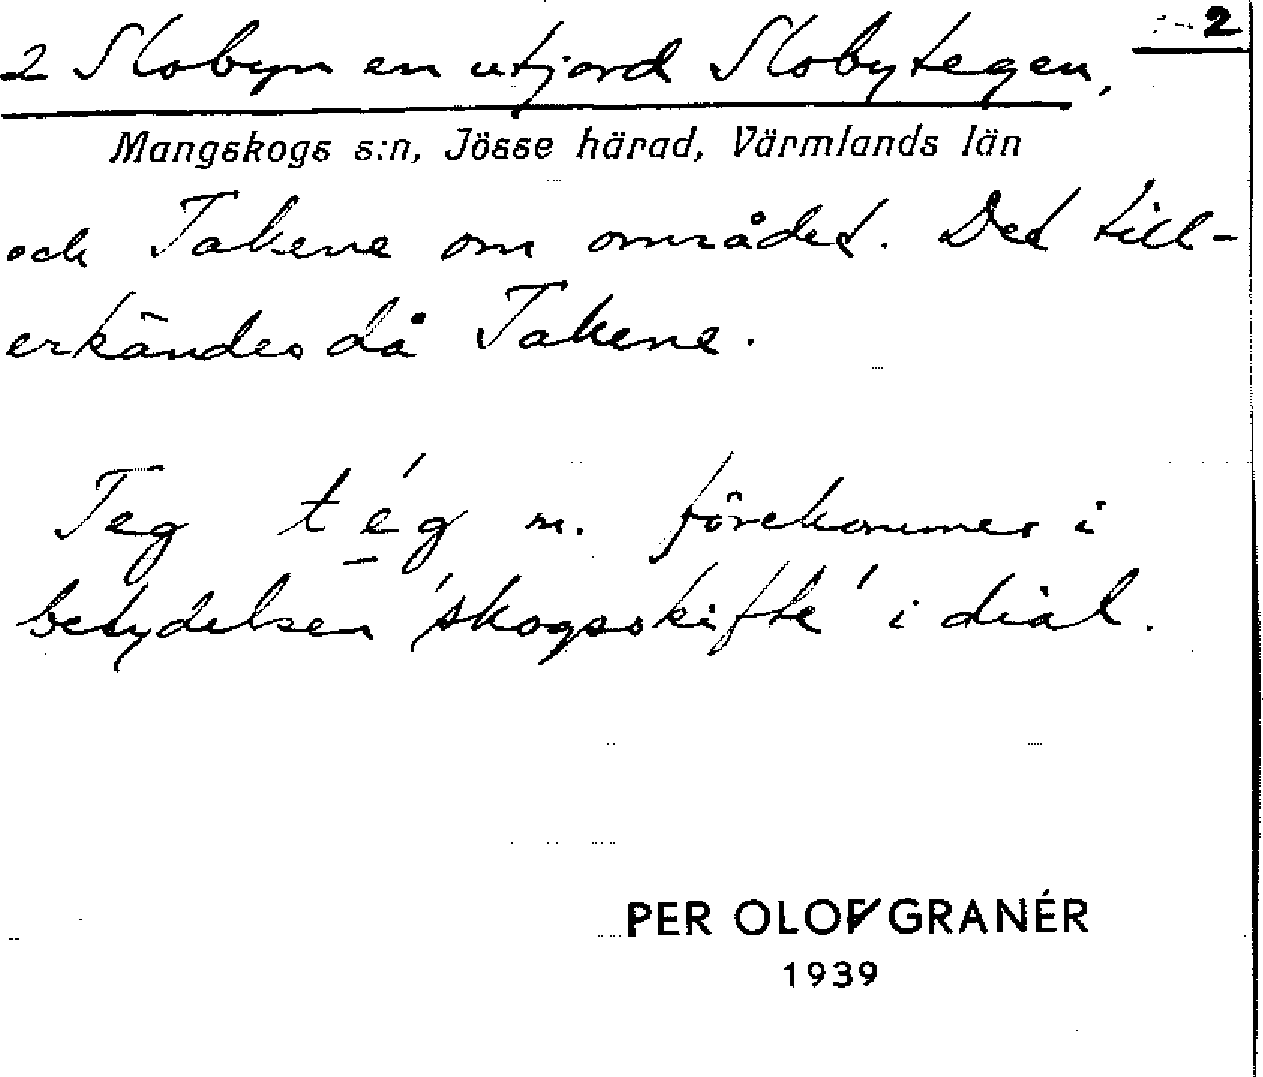 2
2 Slobyn en utjord Slobytegen,
Mangskogs s:n, Jösse härad, Värmlands län
och Takene om området. Det till-
erkändes då Takene.
Teg tég m. förekommer i
betydelsen 'skogsskifte' i dial.
PER OLOF GRANÉR
1939